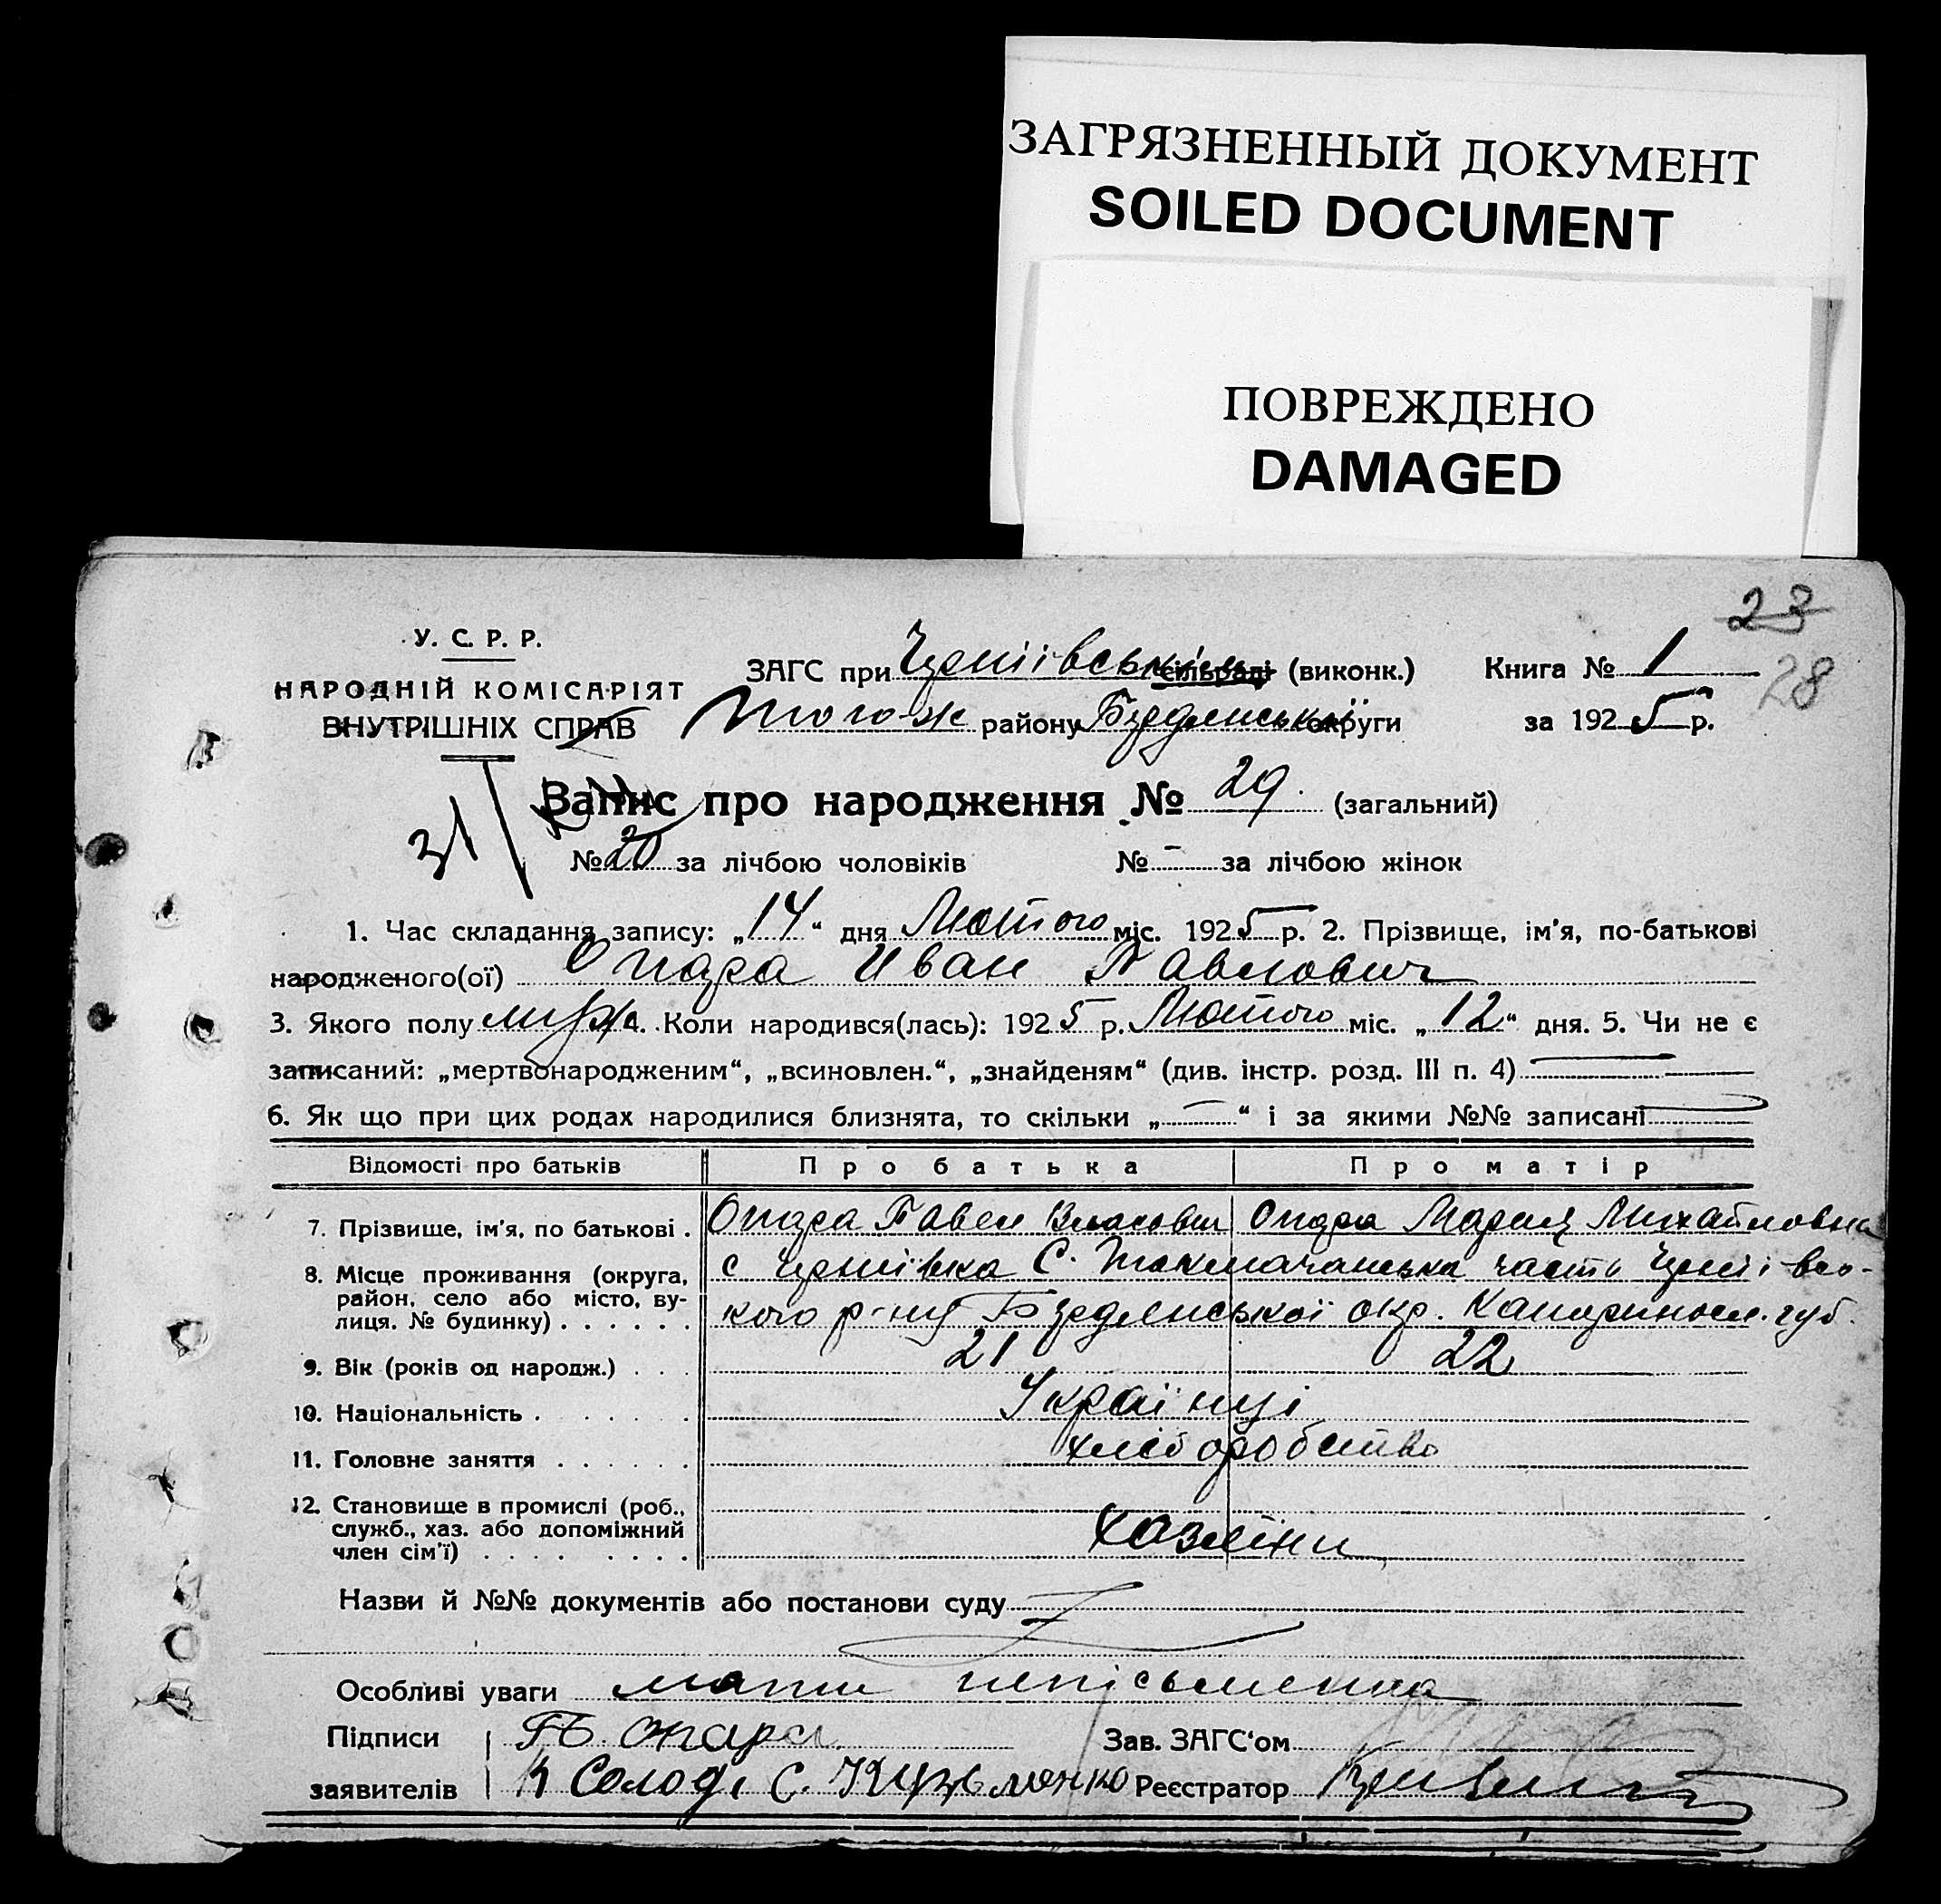 ЗАГРЯЗНЕННЫЙ ДОКУМЕНТ
SOILED DOCUMENT
ПОВРЕЖДЕНО
DAMAGED
23
28
У. С. Р. Р.
НАРОДНІЙ КОМІСАРІЯТ
ВНУТРІШНІХ СПРАВ
ЗАГС при сільраді (виконк.) Книга № 1
того-ж району округи за 1925 р.
31
Запис про народження № 29. (загальний)
№ 20 за лічбою чоловіків № - за лічбою жінок
1. Час складання запису: „14“ дня Лютого міс. 1925 р. 2. Прізвище, ім'я, по-батькові
народженого(ої) Опара Иван Павлович
3. Якого полу муж. 4. Коли народився(лась): 1925 р. Лютого міс. „12“ дня. 5. Чи не є
записаний: „мертвонародженим“, „всиновлен.“, „знайденям“ (див. інстр. розд. III п. 4)
6. Як що при цих родах народилися близнята, то скільки „—“ і за якими №№ записані
Відомості про батьків Про батька Про матір
7. Прізвище, ім'я, по батькові . Опара Павел Власович Опара Мария Михайловна
8. Місце проживання (округа, район, село або місто, вулиця. № будинку) . . . . . . с С. Токмачанська часть
кого р-ну окр. губ.
9. Вік (років од народж.) . . . 21 22
10. Національність . . . . . . Українці
11. Головне заняття . . . . . . хліборобство
12. Становище в промислі (роб., служб., хаз. або допоміжний член сім'ї) . . . . . . . . Хазяїни
Назви й №№ документів або постанови суду
Особливі уваги мати неписьменна
Підписи Опара Зав. ЗАГС'ом
заявителів К Солод С. Кузьменко Реєстратор